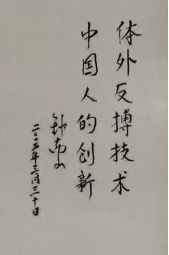 体外反搏技术
中国人的创新
钟南山
二〇二五年三月三十日